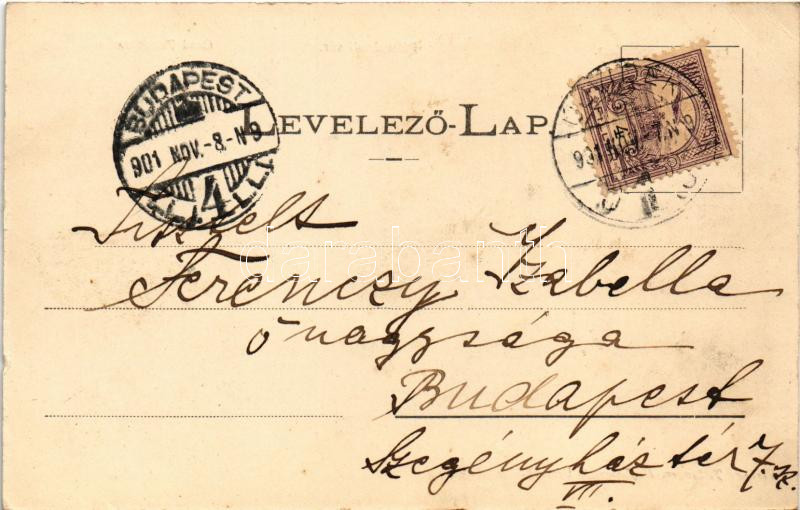 BUDAPEST
901 NOV.-8.-N 9
4
LEVELEZŐ-LAP.
Tisztelt
Ferenczy Izabella
őnagysága
Budapest
Szegényház tér 7. sz.
VII.
darabanth